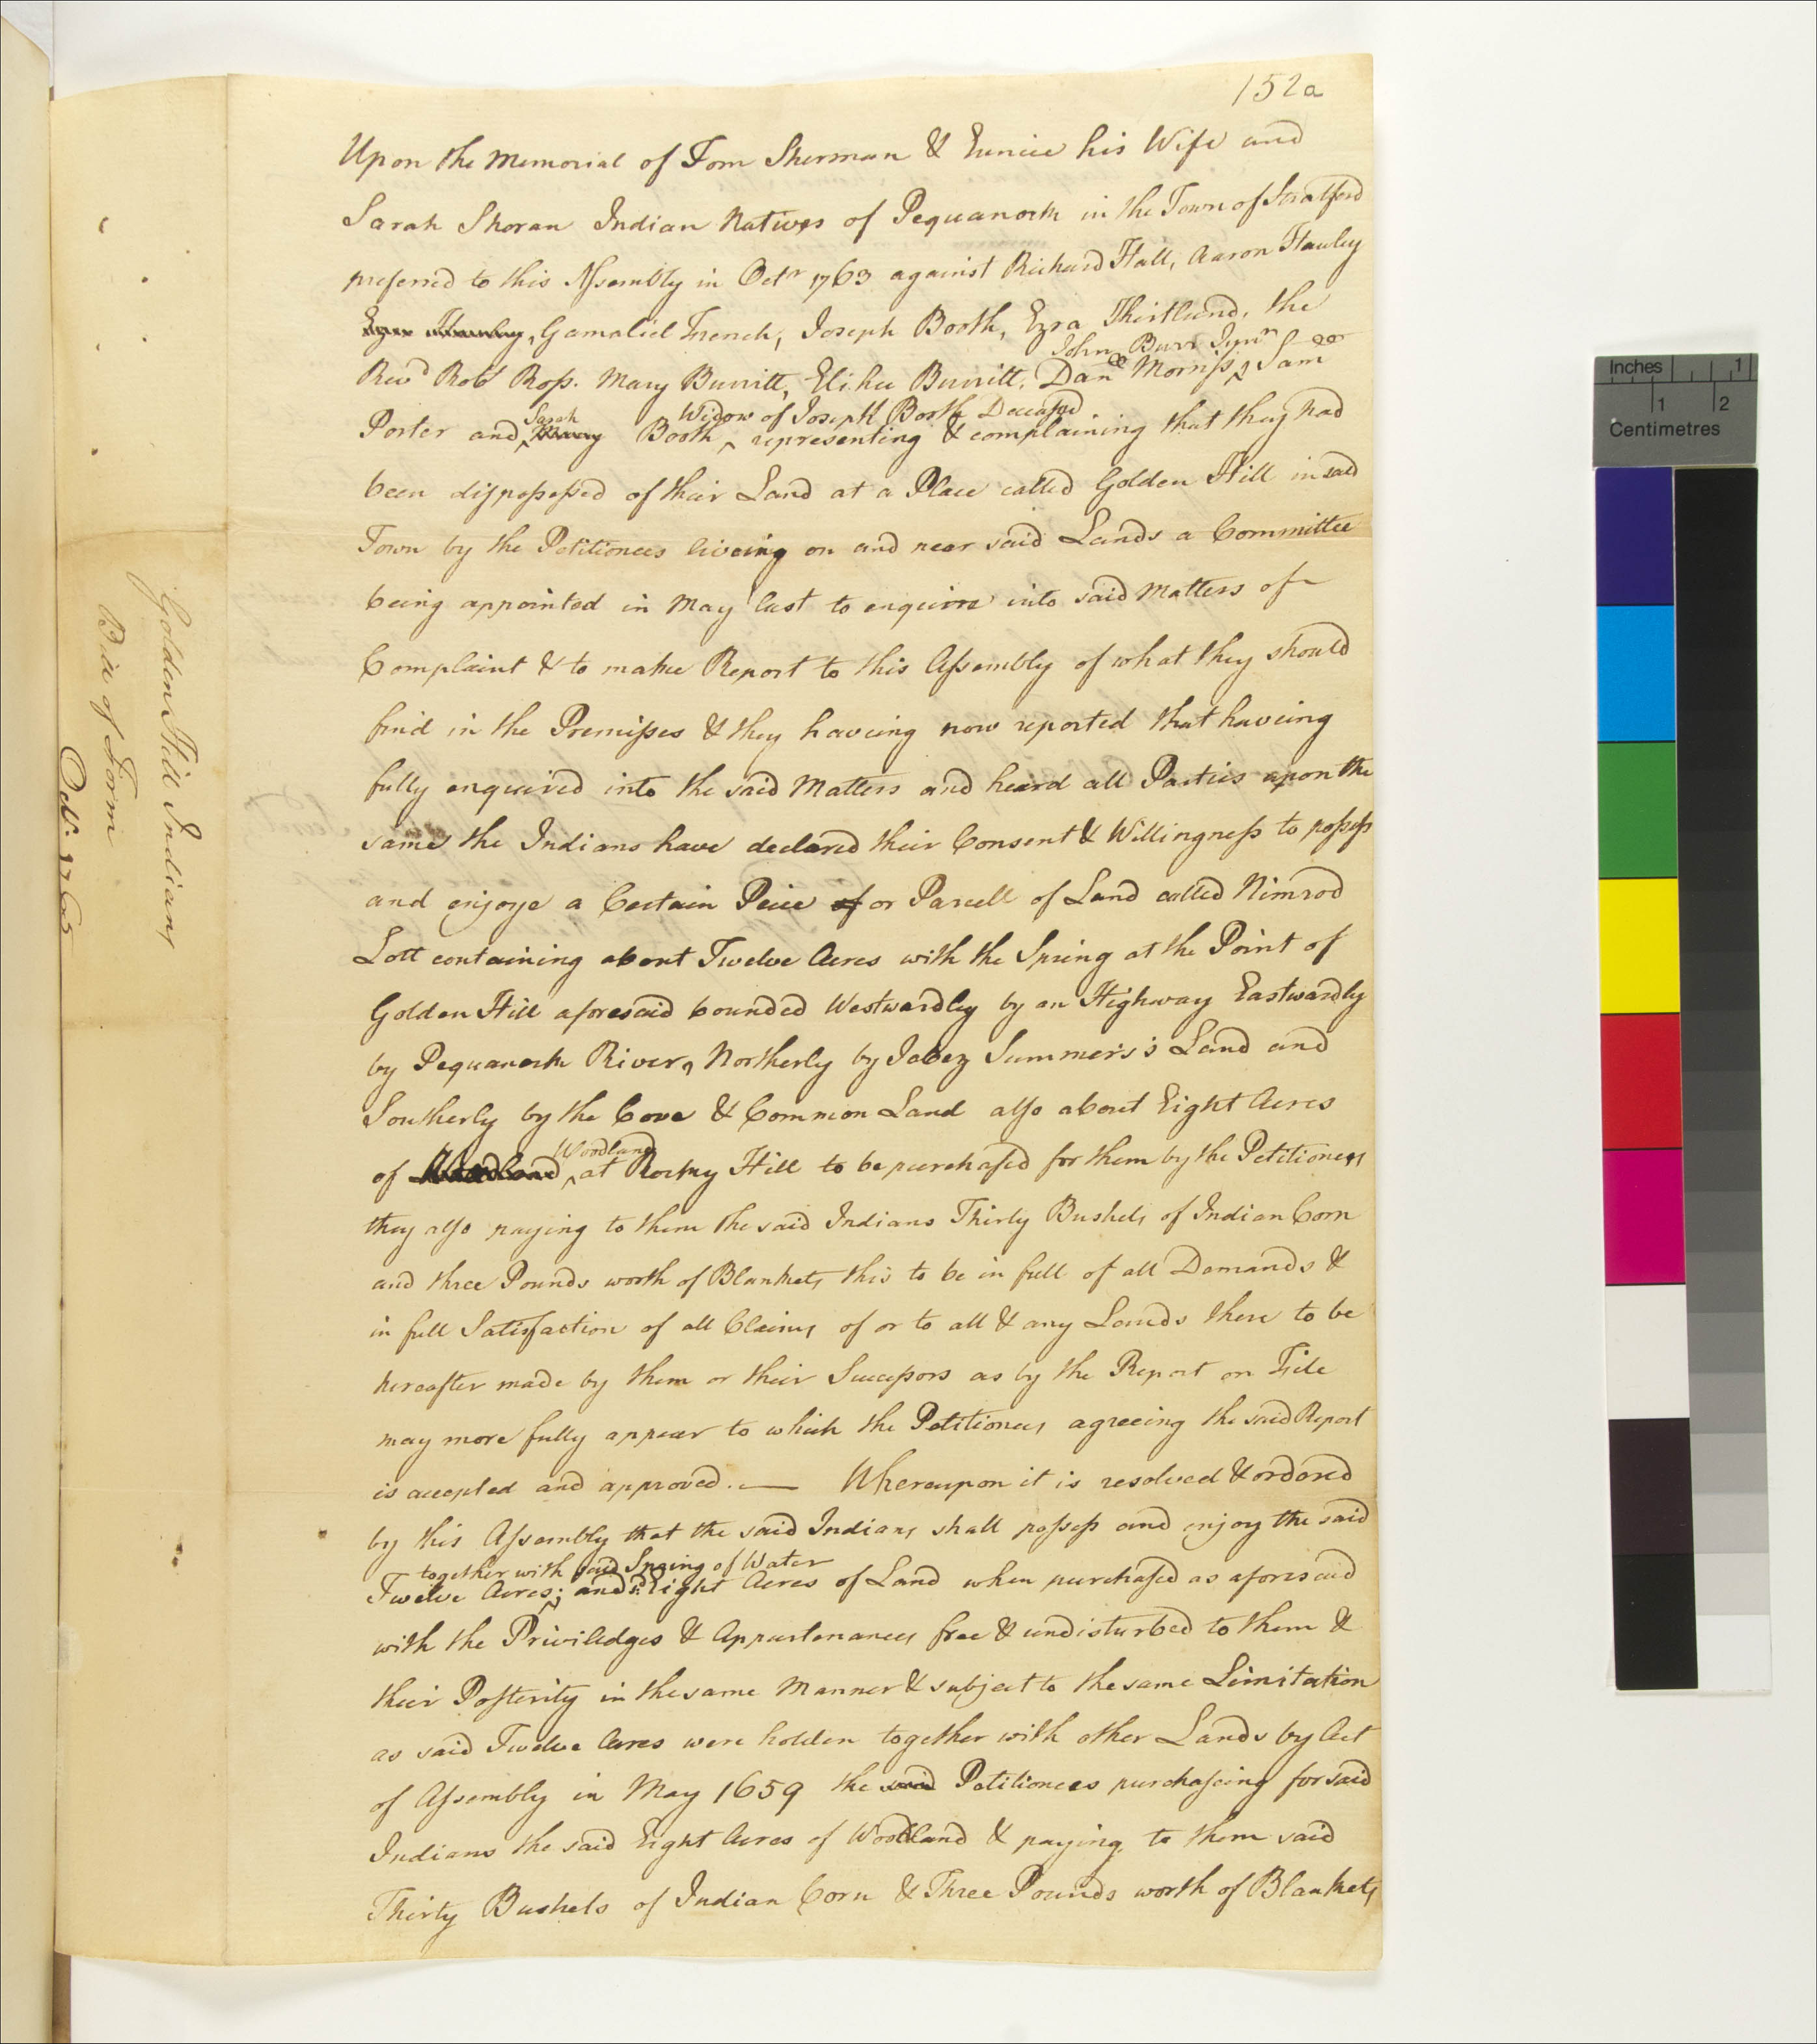 152a
Upon the Memorial of Tom Sherman & Eunice his Wife and
Sarah Shoran Indian Natives of Pequanock in the Town of Stratford
preferred to this Assembly in Octr 1763 against Richard Hall, Aaron Hawley
Gamaliel French, Joseph Booth, Ezra Kirtland, the
John Burr Junr
Revd Robt Ross. Mary Burritt, Elihu Burritt, Danll Morriss, Samll
Sarah Widow of Joseph Booth Deceasd
Porter and Mary Booth, representing & complaining that they had
been dispossessed of their Land at a Place called Golden Hill in said
Town by the Petitionees liveing on and near said Lands a Committee
being appointed in May last to enquire into said Matters of
Complaint & to make Report to this Assembly of what they should
find in the Premisses & they haveing now reported that haveing
fully enquired into the said Matters and heard all Parties upon the
same the Indians have declared their Consent & Willingness to possess
and enjoye a Certain Peice of or Parcell of Land called Nimrod
Lott containing about Twelve Acres with the Spring at the Point of
Golden Hill aforesaid bounded Westwardly by an Highway Eastwardly
by Pequanock River, Northerly by Jabez Summers's Land and
Southerly by the Cove & Common Land also about Eight Acres
Woodland
of Woodland, at Rocky Hill to be purchased for them by the Petitionees
they also paying to them the said Indians Thirty Bushels of Indian Corn
and three Pounds worth of Blankets this to be in full of all Demands &
in full Satisfaction of all Claims of or to all & any Lands there to be
hereafter made by them or their Successors as by the Report on File
may more fully appear to which the Petitionees agreeing the said Report
is accepted and approved. — Whereupon it is resolved & ordered
by this Assembly that the said Indians shall possess and enjoy the said
together with said Spring of Water
Twelve Acres; and sd. Eight Acres of Land when purchased as aforesaid
with the Priviledges & Appurtenances free & undisturbed to them &
their Posterity in the same Manner & subject to the same Limitation
as said Twelve Acres were holden together with other Lands by Act
of Assembly in May 1659 the said Petitionees purchaseing for said
Indians the said Eight Acres of Woodland & paying to them said
Thirty Bushels of Indian Corn & Three Pounds worth of Blankets
Golden Hill Indians
Bill of Form
Octr. 1765
Inches 1
1 2
Centimetres